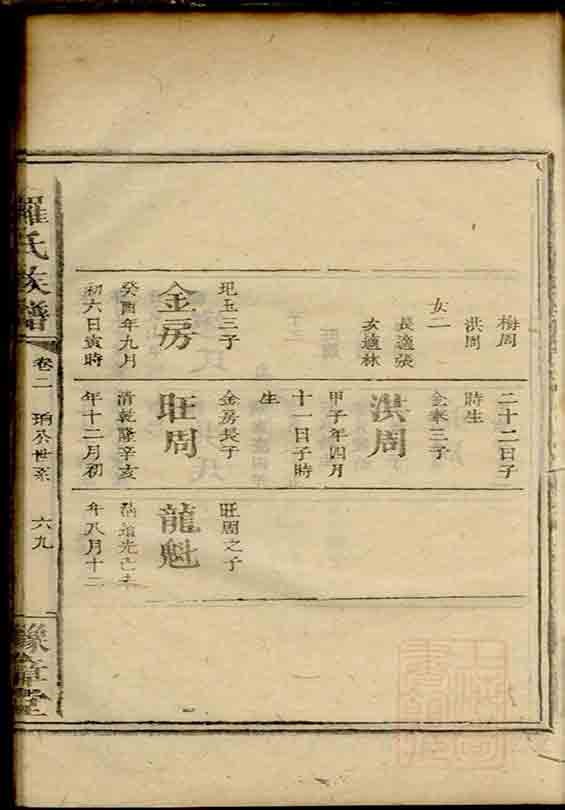 梅周
洪周
女二
長適張
次適林
玘玉三子
金房
癸酉年九月
初六日寅時
二十二日子
時生
金奉三子
洪周
甲子年四月
十一日子時
生
金房長子
旺周
清乾隆辛亥
年十二月初
旺周之子
龍魁
清道光己未
年八月十二
羅氏族譜
卷二
珦公世系
六九
豫章堂